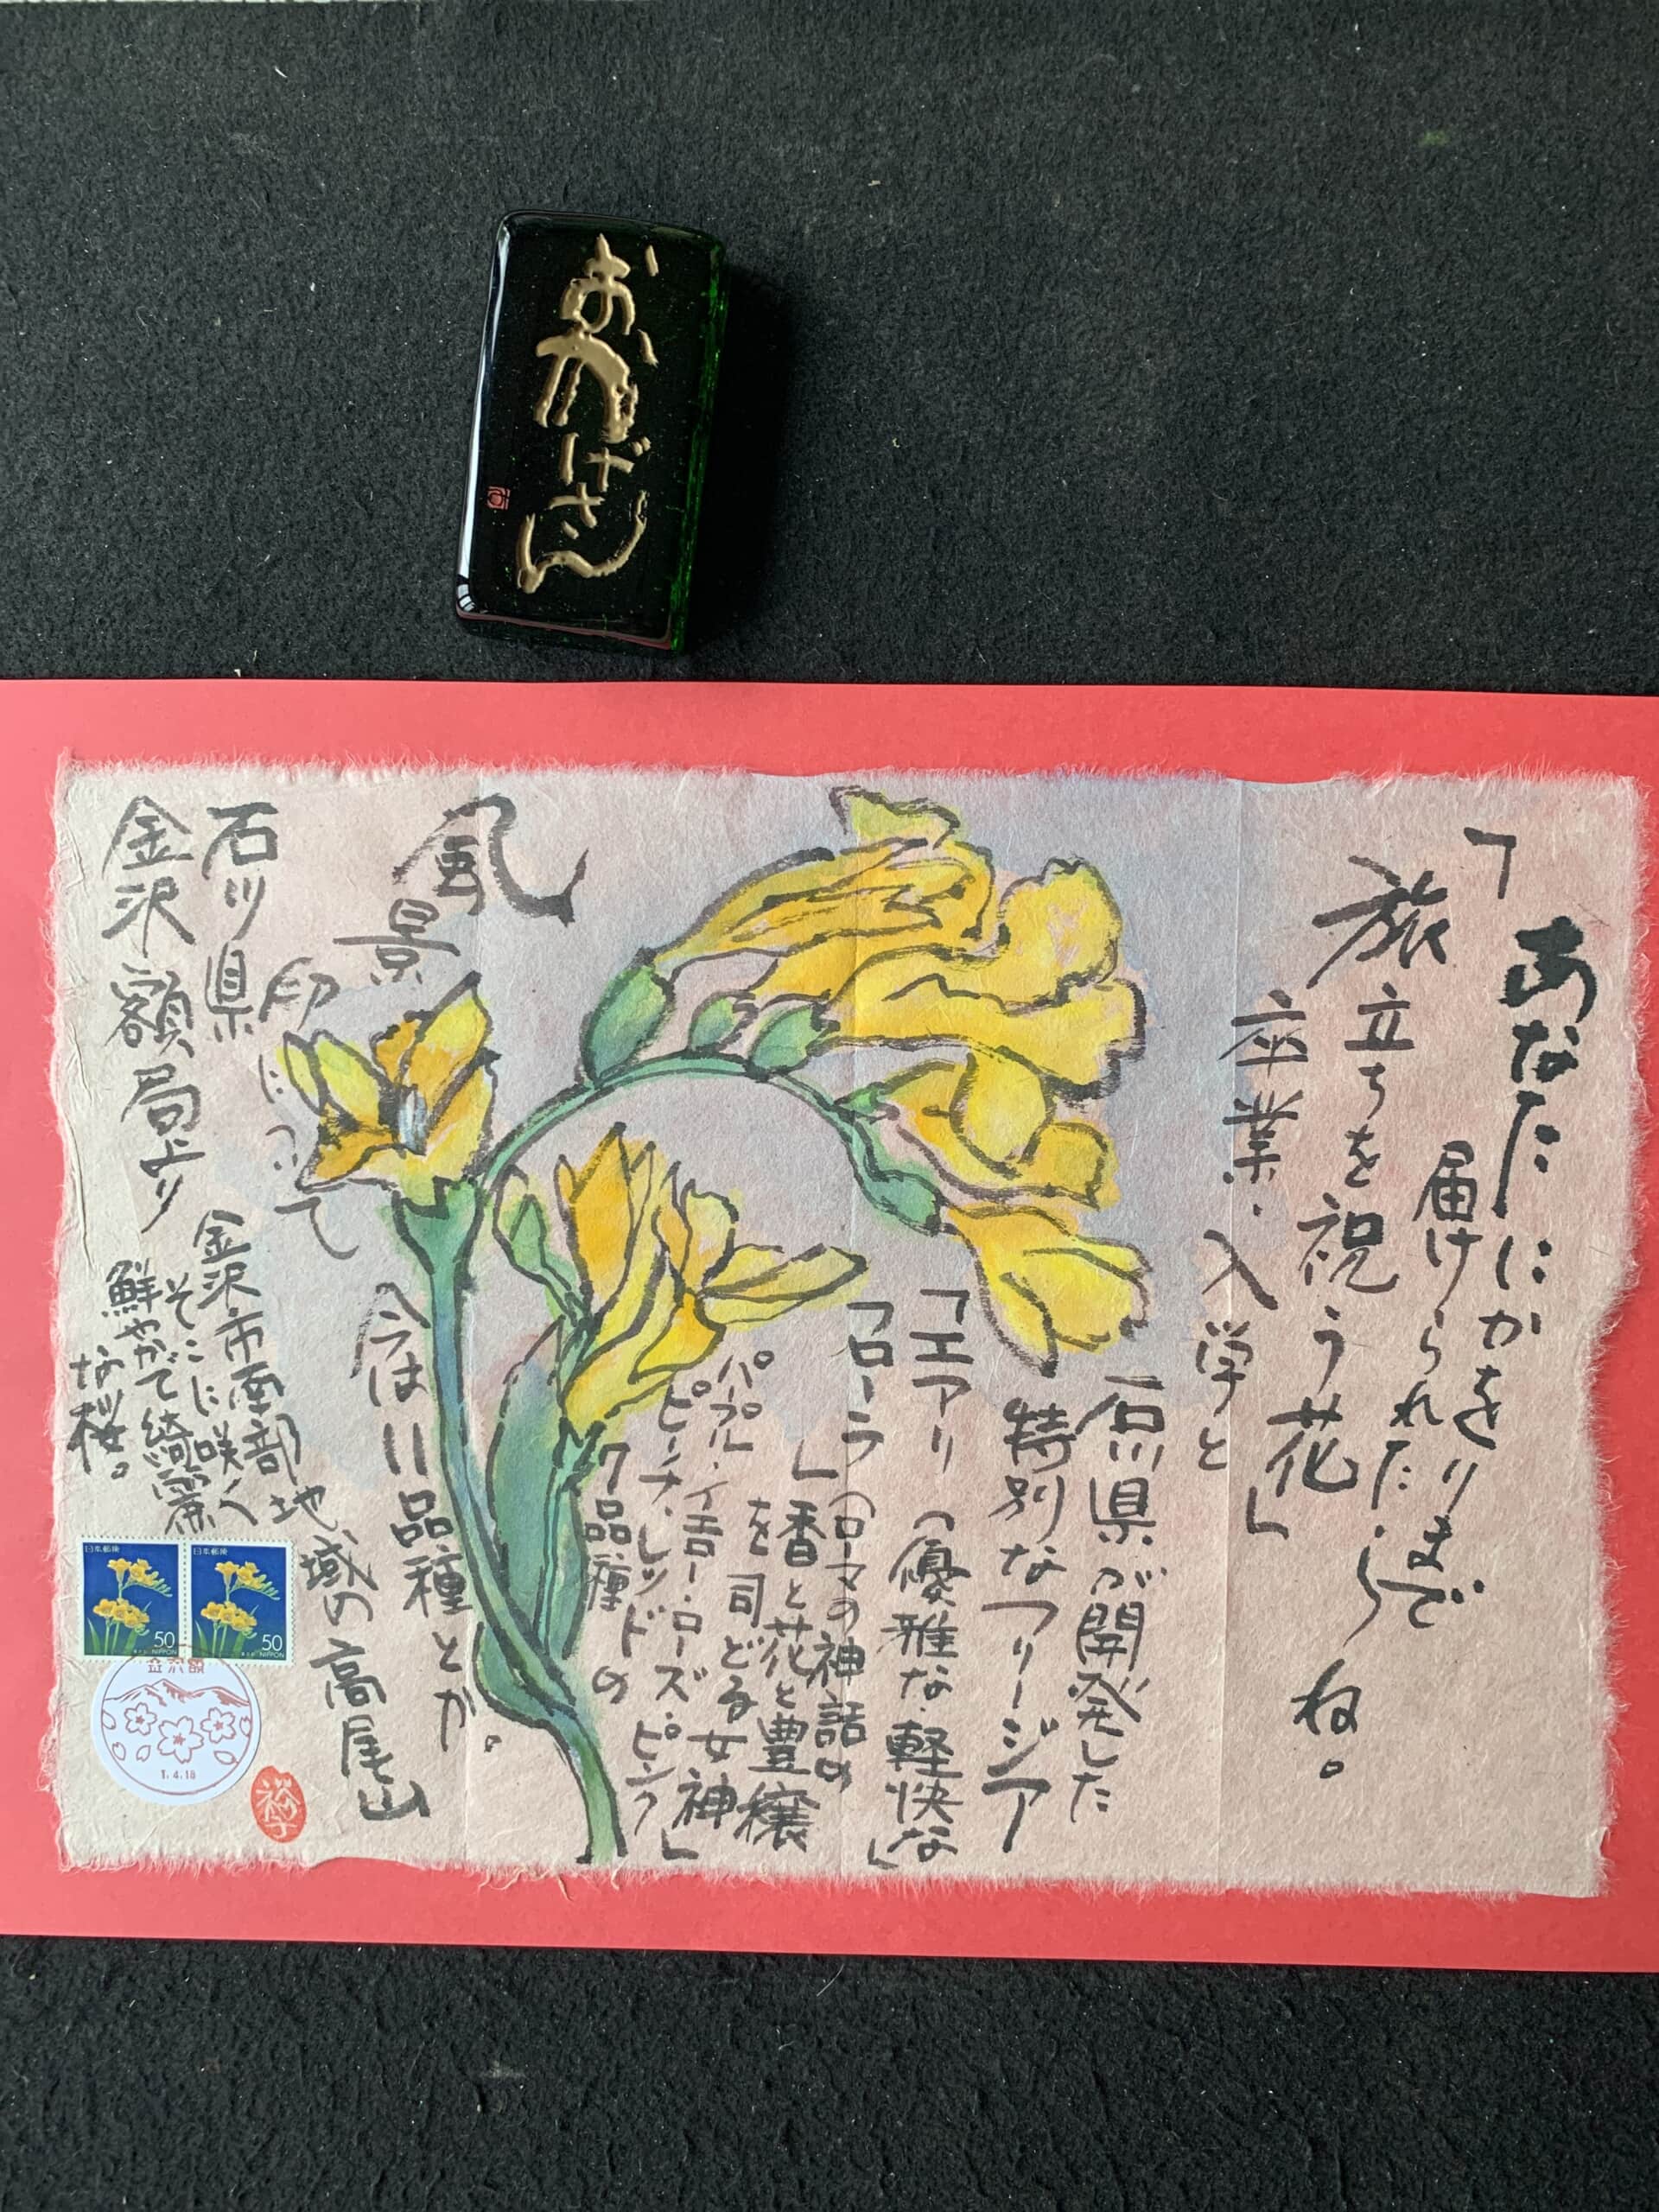 おかげさん
「あなたにかをりまで
届けられたらね。
旅立ちを祝う花」
卒業・入学と
石川県が開発した
特別なフリージア
「エアリー（優雅な・軽快な」
「フローラ（ローマの神話の
香と花と豊穣
を司どる女神」
パープル・イエロー・ローズ・ピンク
ピーチ・レッドの
7品種
今は11品種とか。
風景印について
石川県
金沢額局より
金沢市南部地域の高尾山
そこに咲く
鮮やかで綺麗
な桜。
日本郵便
50
NIPPON
日本郵便
50
NIPPON
金沢額
1.4.18